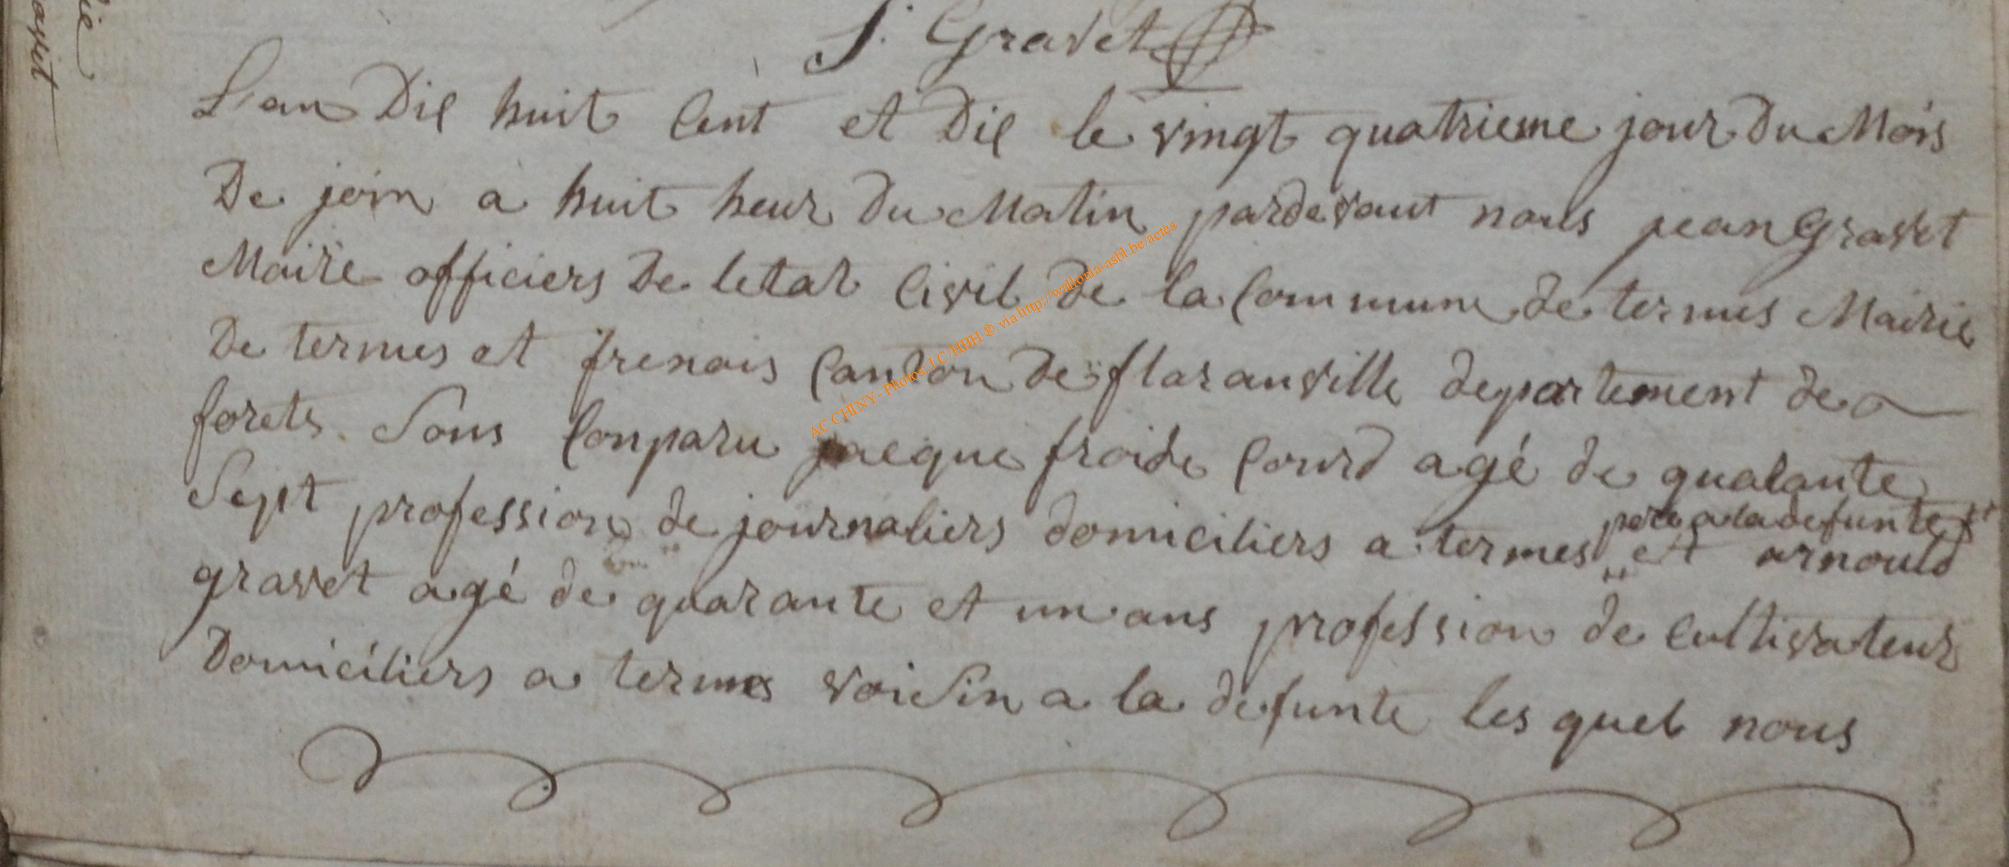 J. Gravet
L'an Dix huit Cent et Dix le vingt quatrieme jour Du Mois
De join a huit heur Du Matin pardevant nous jean Gravet
Maire officiers De letat Civil De la Commune de termes Mairie
De termes et frenois Canton De floranville departement de
forets Sons Conparu jacque froide Courd agé de qualante
Sept profession de journaliers domiciliers a termes et arnould
pere a la defunte
gravet agé de quarante et un ans profession de cultivateur
Domiciliers a termes voisin a la defunte les quel nous
AC CHINY - Photos LC HHH © via http://wallonia-asbl.be/actes